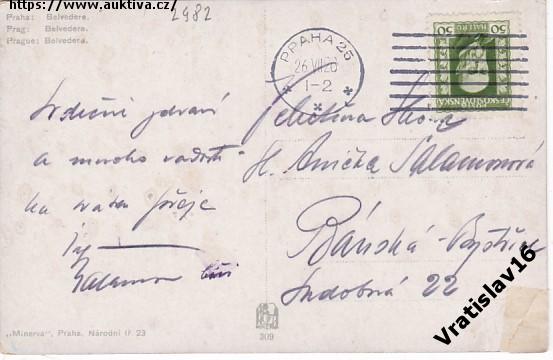 https://www.auktiva.cz/
2982
Praha: Belvedere.
Prag: Belvedere.
Prague: Belvedera.
PRAHA 25
26 VII 26
1-2
50 HALÉŘŮ 50
ČESKOSLOVENSKÁ
Srdečné zdraví
a mnoho radosti
přeje
Salamon
Slečna
Sl. Anička Salamonová
Bánská-Bystřica
22
„Minerva", Praha, Národní tř. 23
309
Vratislav16